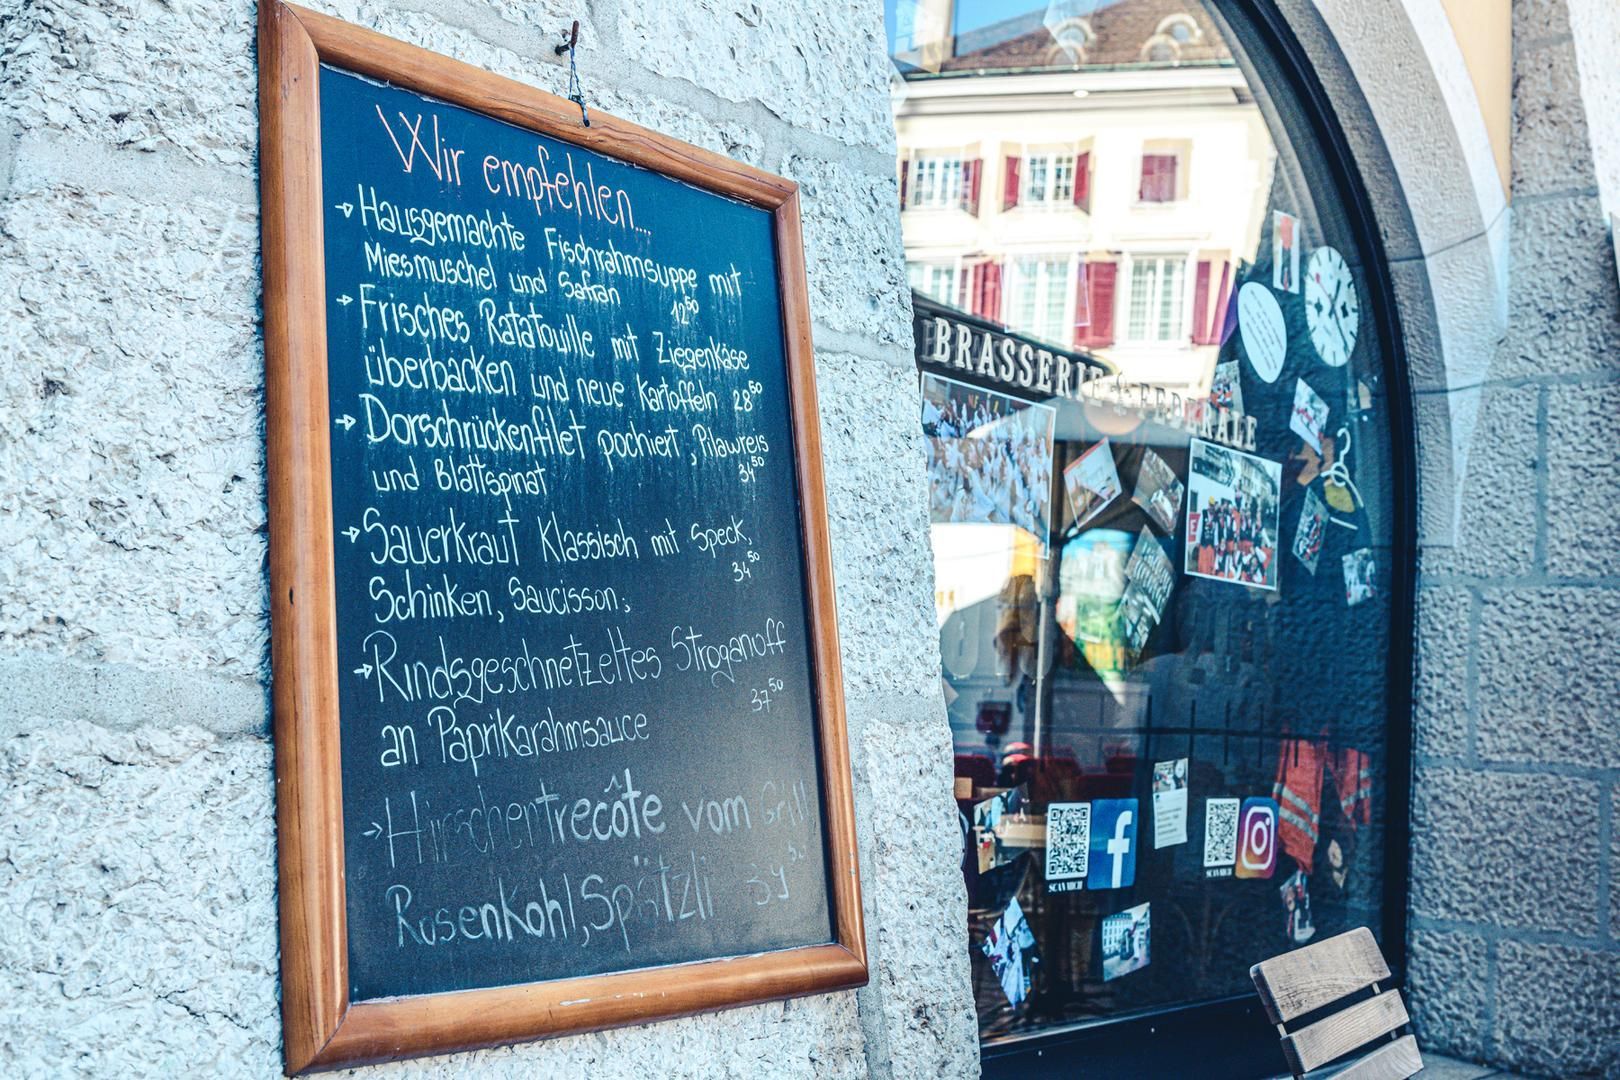 Wir empfehlen....
→ Hausgemachte Fischrahmsuppe mit
Miesmuschel und Safran 12⁵⁰
→ Frisches Ratatouille mit Ziegenkäse
überbacken und neue Kartoffeln 28⁵⁰
→ Dorschrückenfilet pochiert, Pilawreis
und Blattspinat 34⁵⁰
→ Sauerkraut Klassisch mit Speck,
Schinken, Saucisson; 34⁵⁰
→ Rindsgeschnetzeltes Stroganoff
an Paprikarahmsauce 37⁵⁰
→ Hirschentrecôte vom Grill
Rosenkohl, Spätzli 39⁵⁰
BRASSERIE FEDERALE
SCAN MICH
SCAN MICH